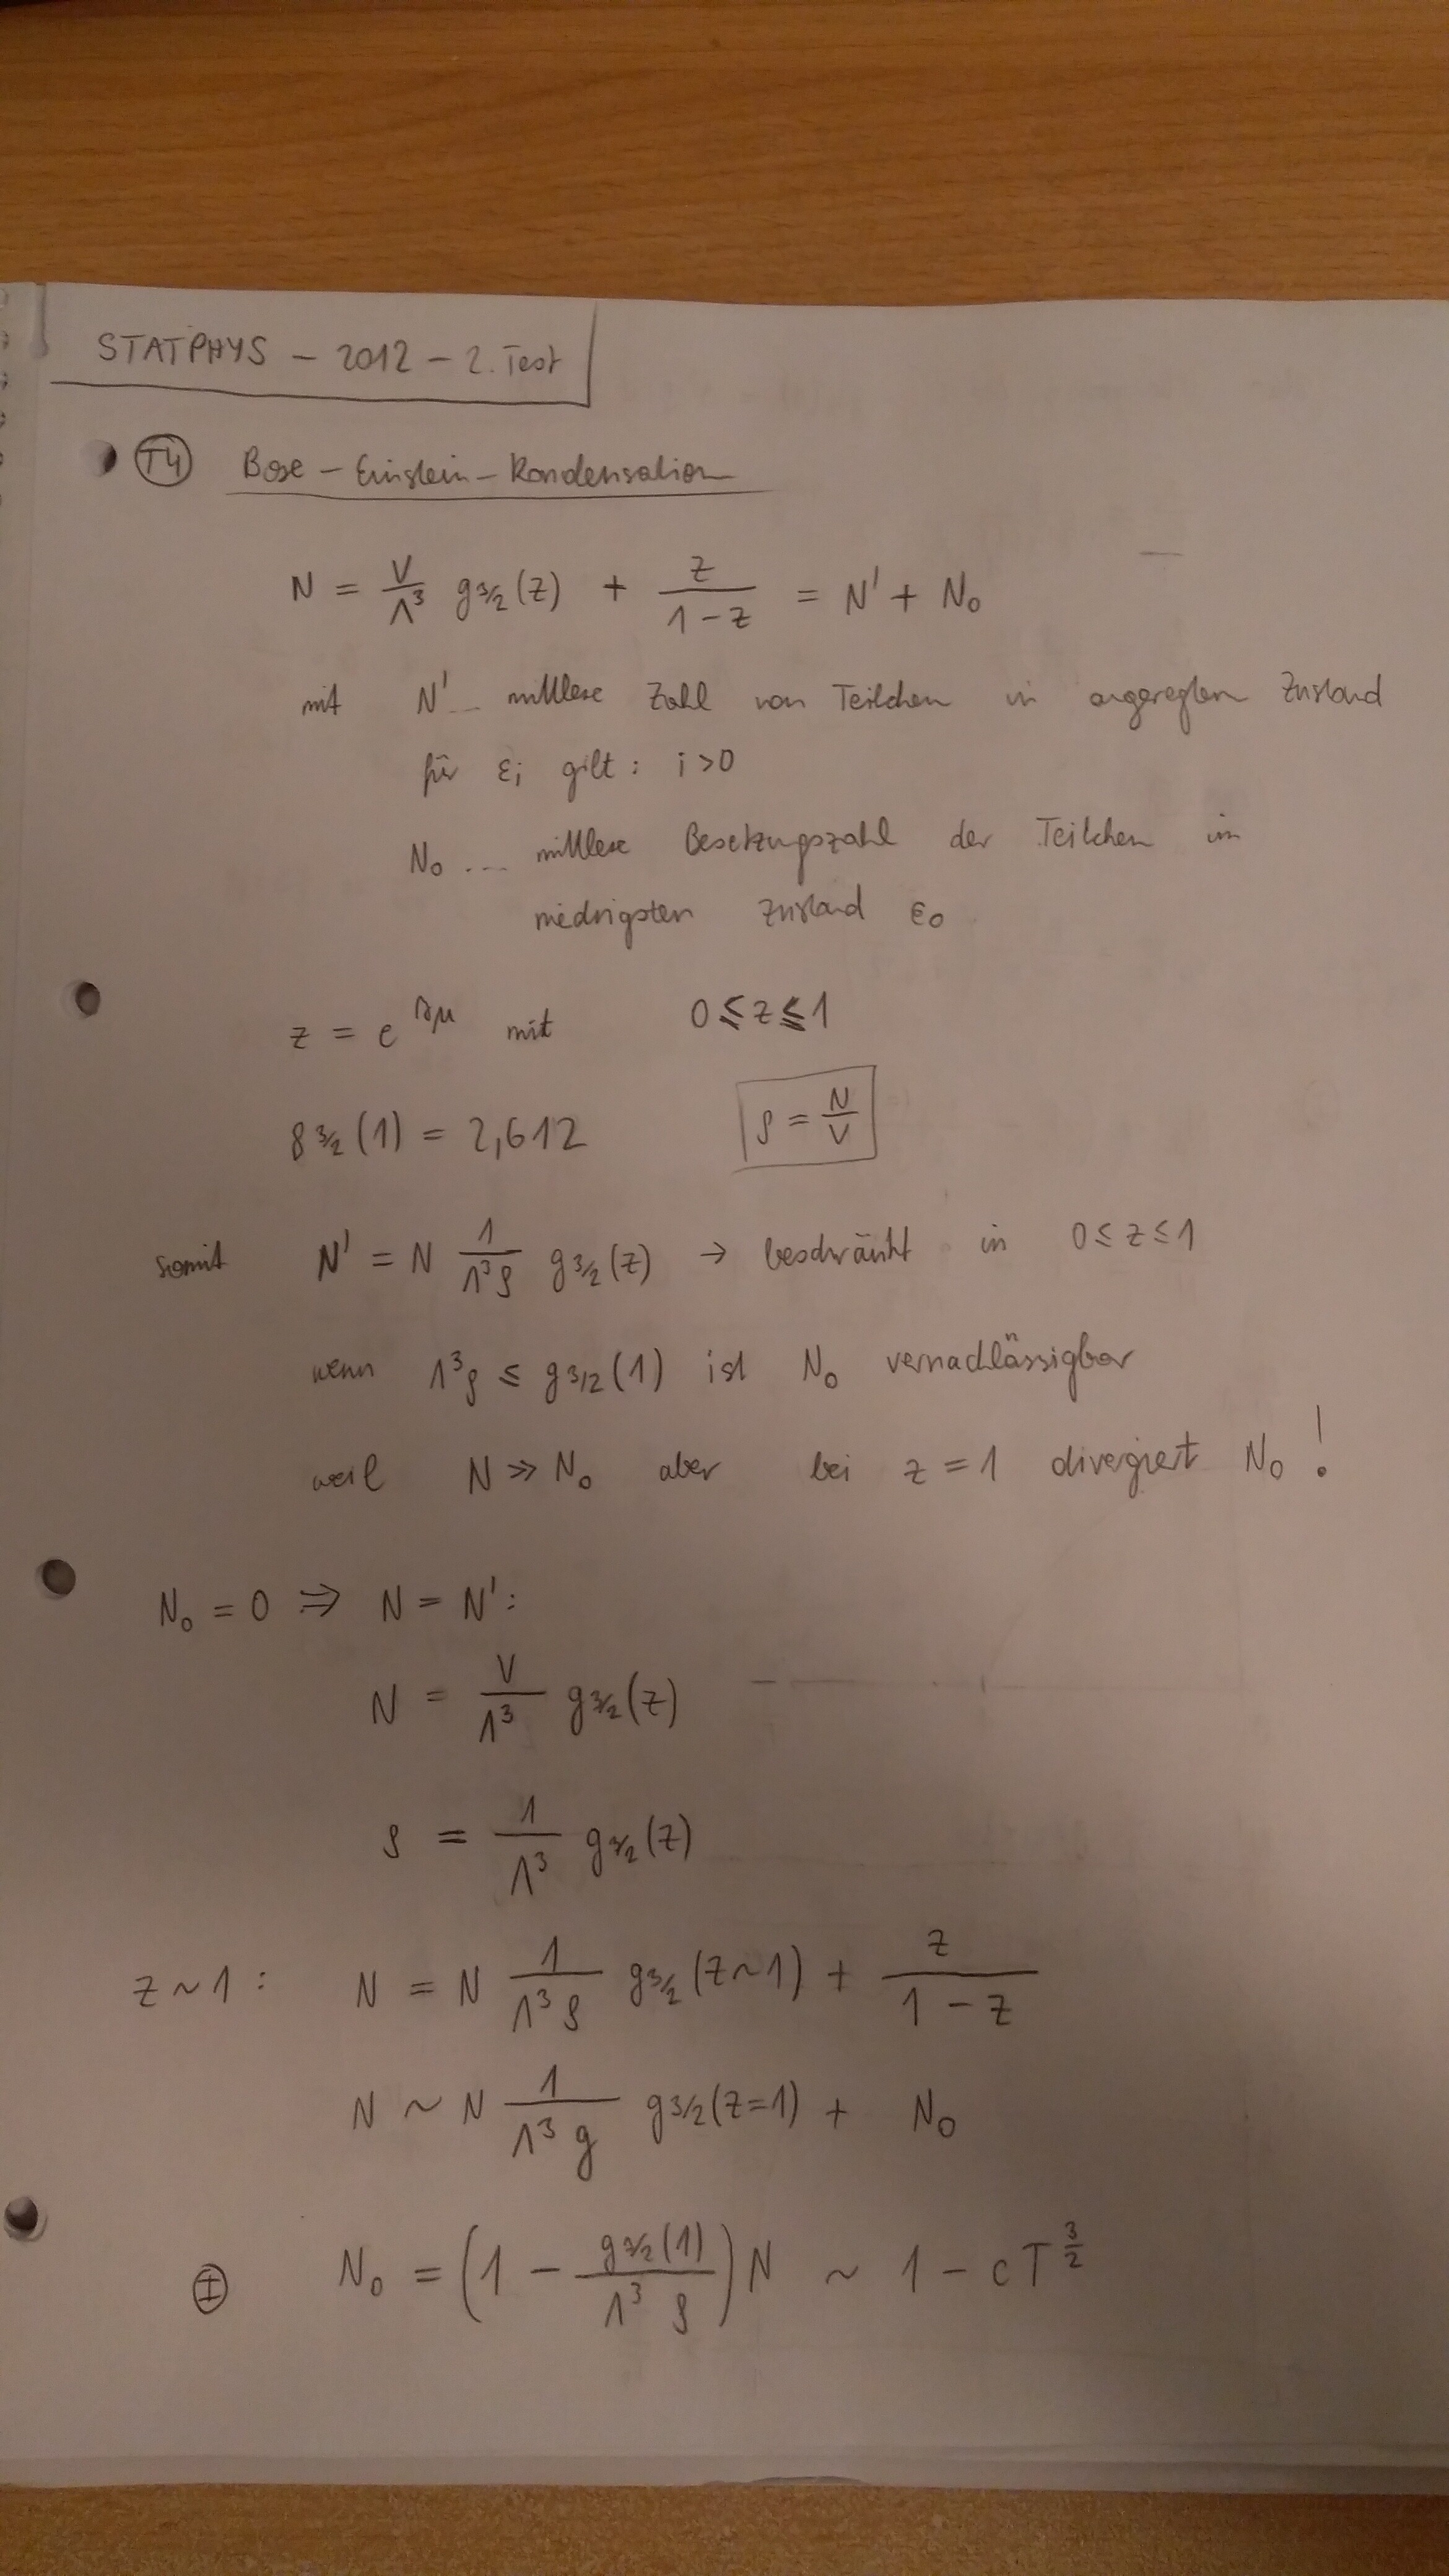 STATPHYS – 2012 – 2. Test
T4 Bose – Einstein – Kondensation
N = V/Λ³ g3/2(z) + z/(1-z) = N' + N₀
mit N' ... mittlere Zahl von Teilchen in angeregten Zustand
für εᵢ gilt: i > 0
N₀ .... mittlere Besetzungszahl der Teilchen im
niedrigsten Zustand ε₀
z = e^βμ mit 0 ≤ z ≤ 1
g3/2(1) = 2,612 ρ = N/V
somit N' = N 1/(Λ³ρ) g3/2(z) → beschränkt in 0 ≤ z ≤ 1
wenn Λ³ρ ≤ g3/2(1) ist N₀ vernachlässigbar
weil N ≫ N₀ aber bei z = 1 divergiert N₀ !
N₀ = 0 ⇒ N = N' :
N = V/Λ³ g3/2(z)
ρ = 1/Λ³ g3/2(z)
z ~ 1 : N = N 1/(Λ³ρ) g3/2(z~1) + z/(1-z)
N ~ N 1/(Λ³g) g3/2(z=1) + N₀
I N₀ = (1 - g3/2(1)/(Λ³ρ)) N ~ 1 - cT^3/2